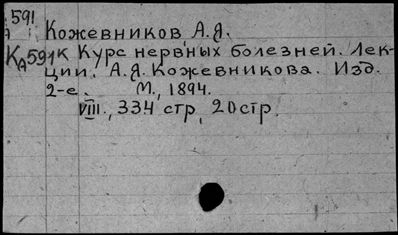 591
А Кожевников А.Я.
КА591к Курс нервных болезней. Лек-
ции. А.Я. Кожевникова. Изд.
2-е. М., 1894.
VIII, 334 стр, 20стр.